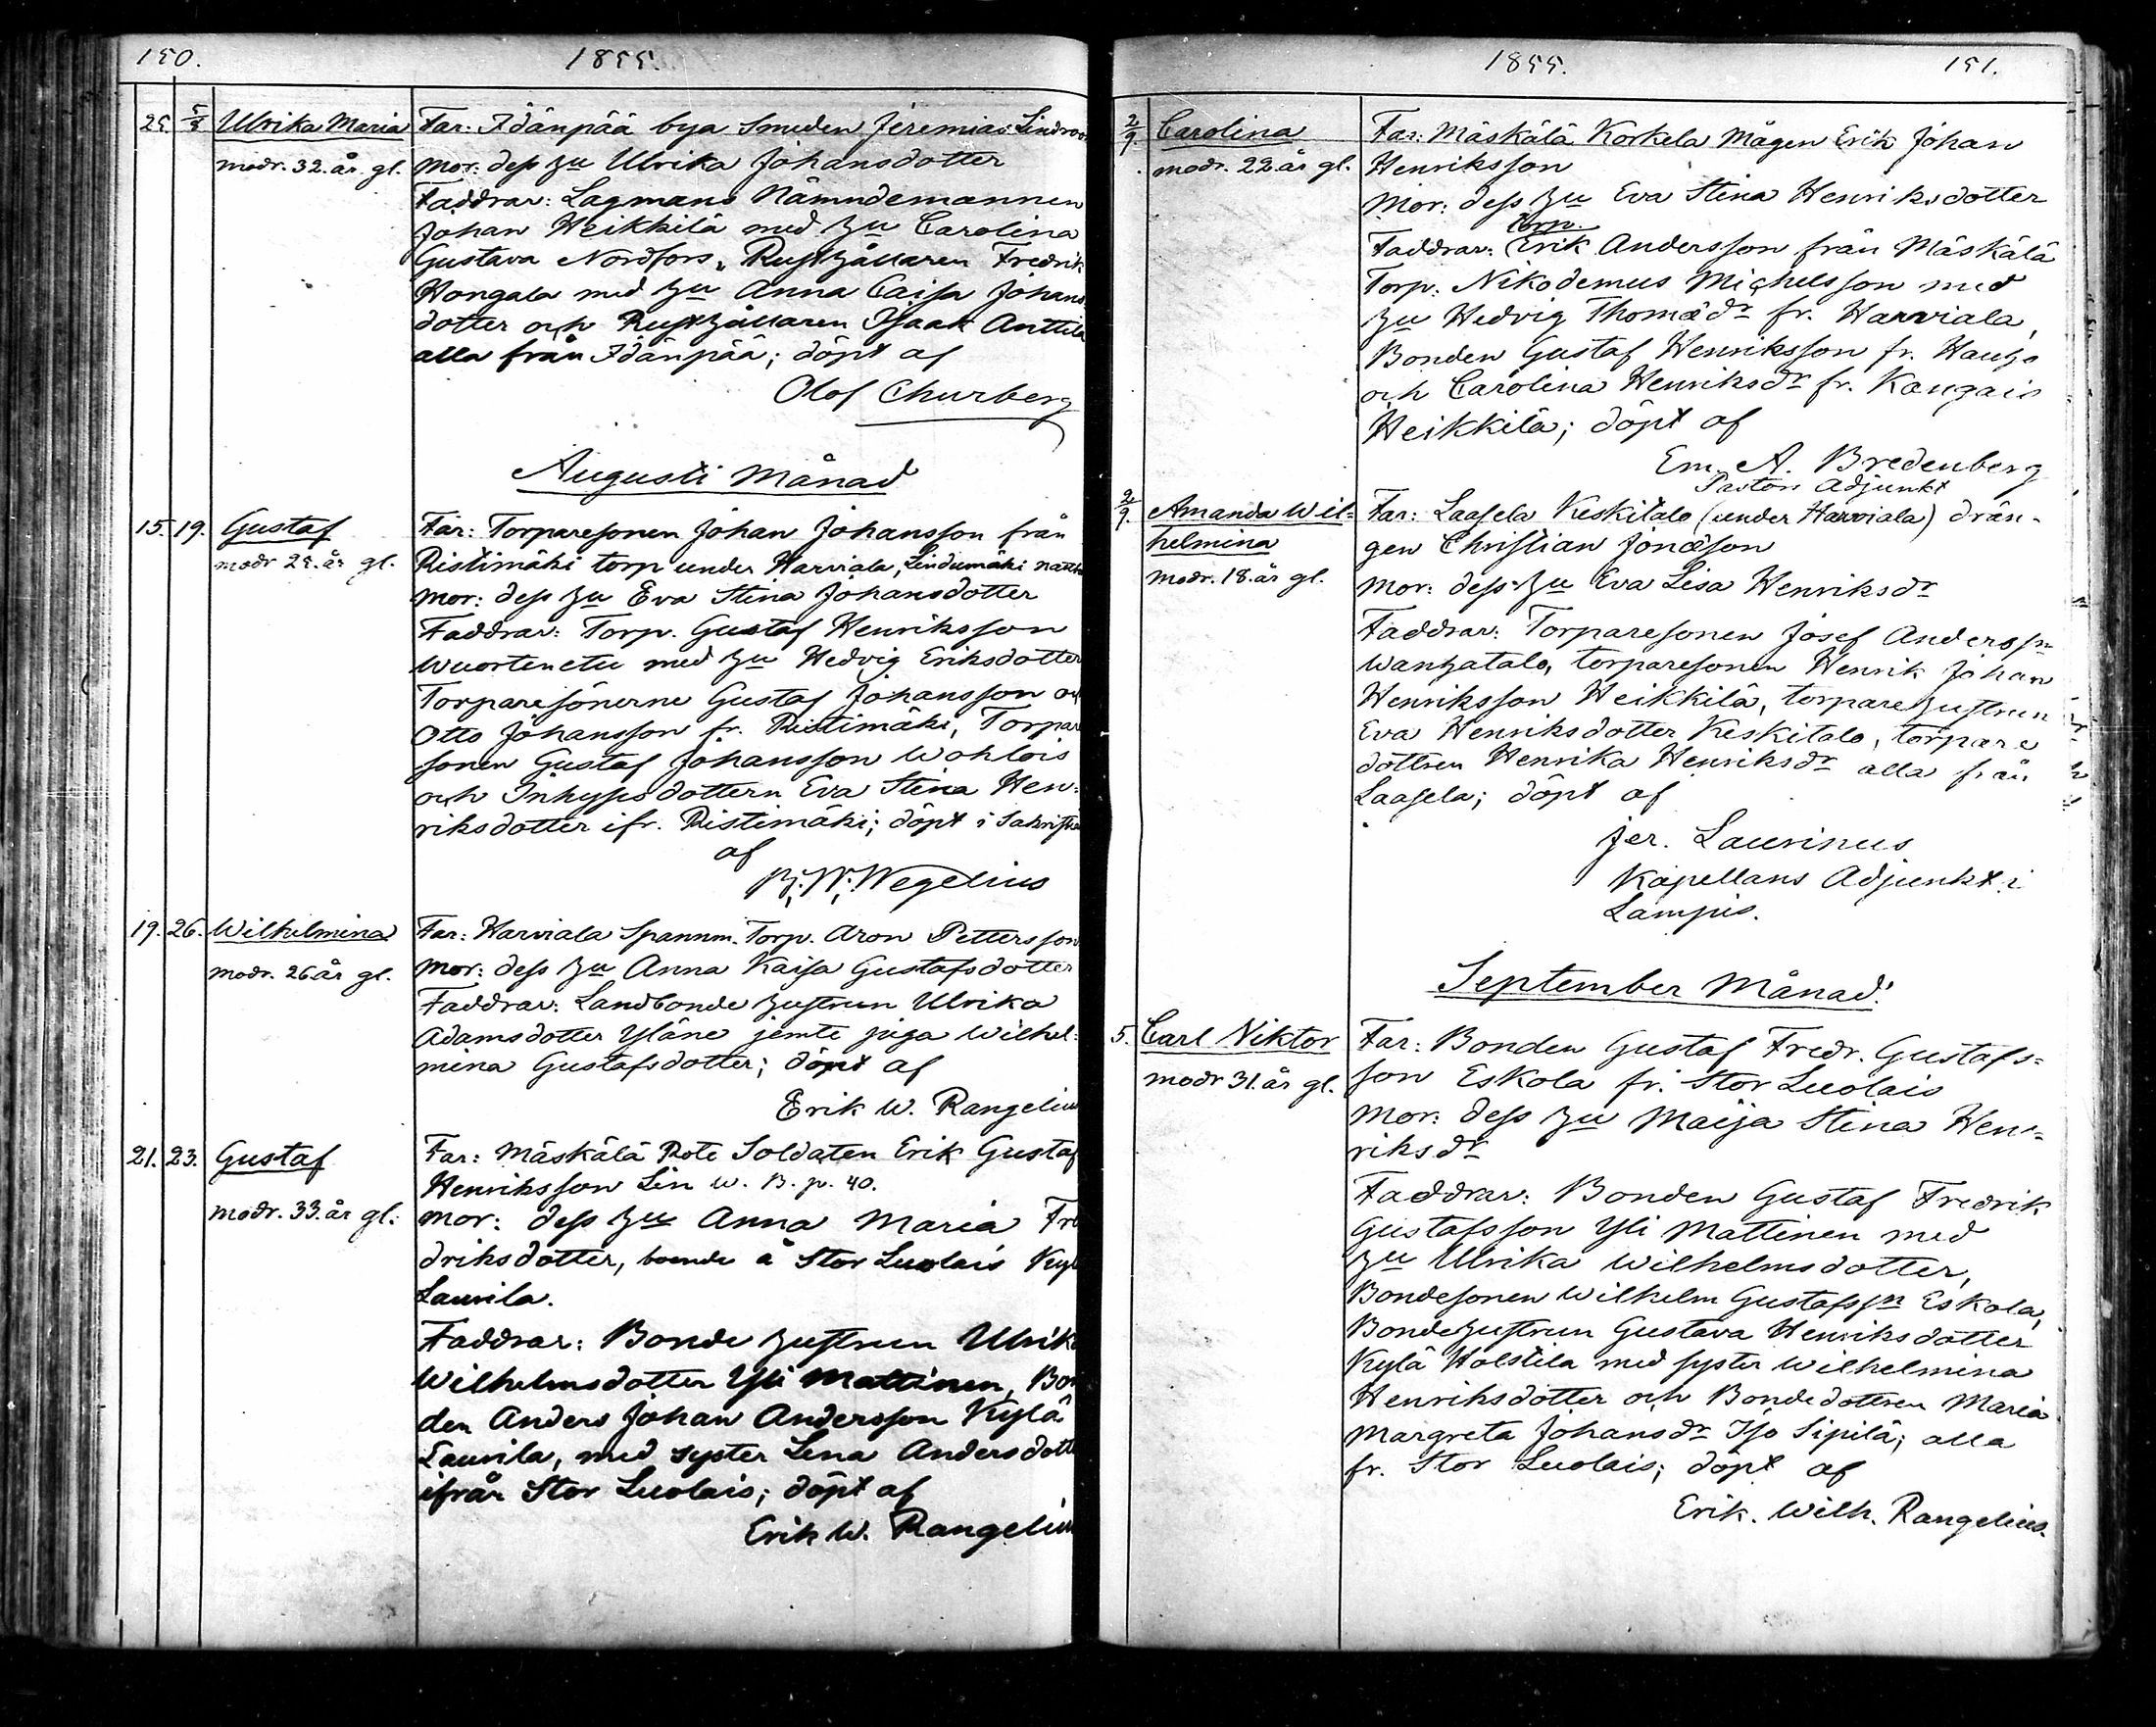 150.
1855.
25 5/8 Ulrika Maria
modr. 32. år gl.
Far: Idänpää bya Smeden Jeremias Lindroos
Mor: dess hu Ulrika Johansdotter
Faddrar: Lagmans Nämndemannen
Johan Heikkilä med hu Carolina
Gustava Nordfors, Rusthållaren Fredrik
Hongala med hu Anna Caisa Johans
dotter och Rusthållaren Isaak Anttila
alla från Idänpää; döpt af
Olof Churberg
Augusti Månad
15. 19. Gustaf
modr 25. år gl.
Far: Torparesonen Johan Johansson från
Ristimäki torp under Harviala, Lindumäki
Mor: dess hu Eva Stina Johansdotter
Faddrar: Torp. Gustaf Henriksson
Wuortenetu med hu Hedvig Eriksdotter
Torparesönerne Gustaf Johansson
Otto Johansson fr. Ristimäki, Torpare
sonen Gustaf Johansson Wohlois
och Inhyses dottern Eva Stina Hen-
riksdotter ifr. Ristimäki; döpt i Sakristia
af
B. W. Wegelius
19. 26. Wilhelmina
modr. 26 år gl.
Far: Harviala Spannm. Torp. Aron Pettersson
Mor: dess hu Anna Kaisa Gustafsdotter
Faddrar: Landbonde hustrun Ulrika
Adamsdotter Yläne jemte piga Wilhel-
mina Gustafsdotter; döpt af
Erik W. Rangelius
21. 23. Gustaf
modr. 33. år gl.
Far: Mäskälä Rote Soldaten Erik Gustaf
Henriksson Lin w. B. p. 40.
Mor: dess hu Anna Maria Fre
driksdotter, boende å Stor Luolais Kylä
Laurila.
Faddrar: Bonde hustrun Ulrika
Wilhelmsdotter Yli Mattinen, Bon
den Anders Johan Andersson Kylä
Laurila, med syster Lena Andersdott
ifrån Stor Luolais; döpt af
Erik W. Rangelius
1855.
151.
2/9. Carolina
modr. 22. år gl.
Far: Mäskälä Korkela Mågen Erik Johan
Henriksson
Mor: dess hu Eva Stina Henriksdotter
Torp.
Faddrar: Erik Andersson från Mäskälä
Torp. Nikodemus Michelsson med
hu Hedvig Thomædr fr. Harviala,
Bonden Gustaf Henriksson fr. Hauho
och Carolina Henriksdr fr. Kangais
Heikkilä; döpt af
Em. A. Bredenberg
Pastors Adjunkt
2/9. Amanda Wil-
helmina
modr. 18. år gl.
Far: Laasela Keskitalo (under Harviala) drän-
gen Christian Jonæson
Mor: dess hu Eva Lisa Henriksdr
Faddrar: Torparesonen Josef Anderssn
Wanhatalo, torparesonen Henrik Johan
Henriksson Heikkilä, torparehustrun
Eva Henriksdotter Keskitalo, torpare
dottren Henrika Henriksdr alla från
Laasela; döpt af
Jer. Laurinus
Kapellans Adjunkt i
Lampis.
September Månad.
5. Carl Viktor
modr 31. år gl.
Far: Bonden Gustaf Fredr. Gustafs-
son Eskola fr. Stor Luolais
Mor: dess hu Maija Stina Hen-
riksdr
Faddrar: Bonden Gustaf Fredrik
Gustafsson Yli Mattinen med
hu Ulrika Wilhelmsdotter,
Bondesonen Wilhelm Gustafssn Eskola,
Bondehustrun Gustava Henriksdotter
Kylä Holstila med syster Wilhelmina
Henriksdotter och Bondedottren Maria
Margreta Johansdr Iso Sipilä; alla
fr. Stor Luolais; döpt af
Erik. Wilh. Rangelius.